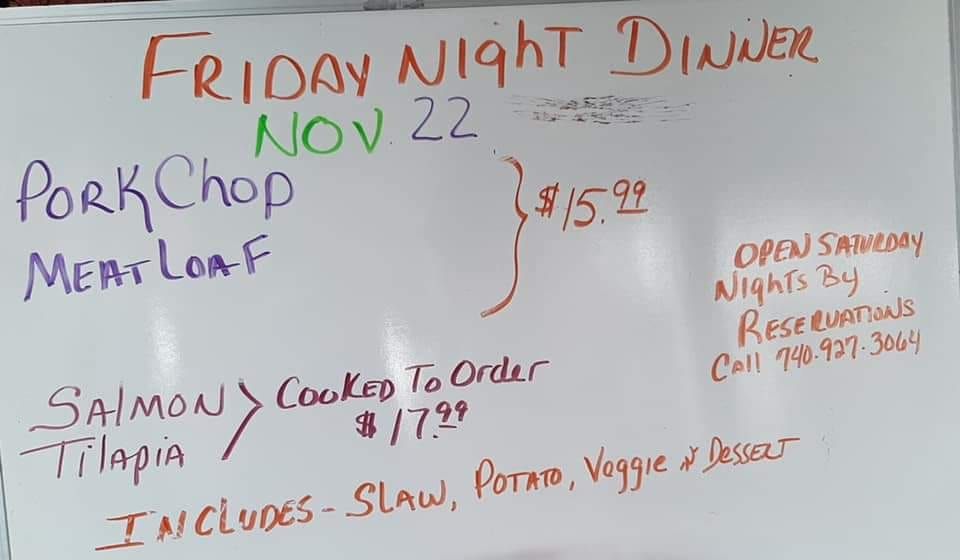 FRIDAY NIghT DINNER
NOV. 22
PORK ChOP
MEAT LOAF
$15.99
OPEN SATURDAY
NIghTS By
RESERVATIONS
Call 740.927.3064
SAlMON
TilApiA
COOKED To Order
$17.99
INCLUDES - SLAW, POTATO, Veggie N DESSERT